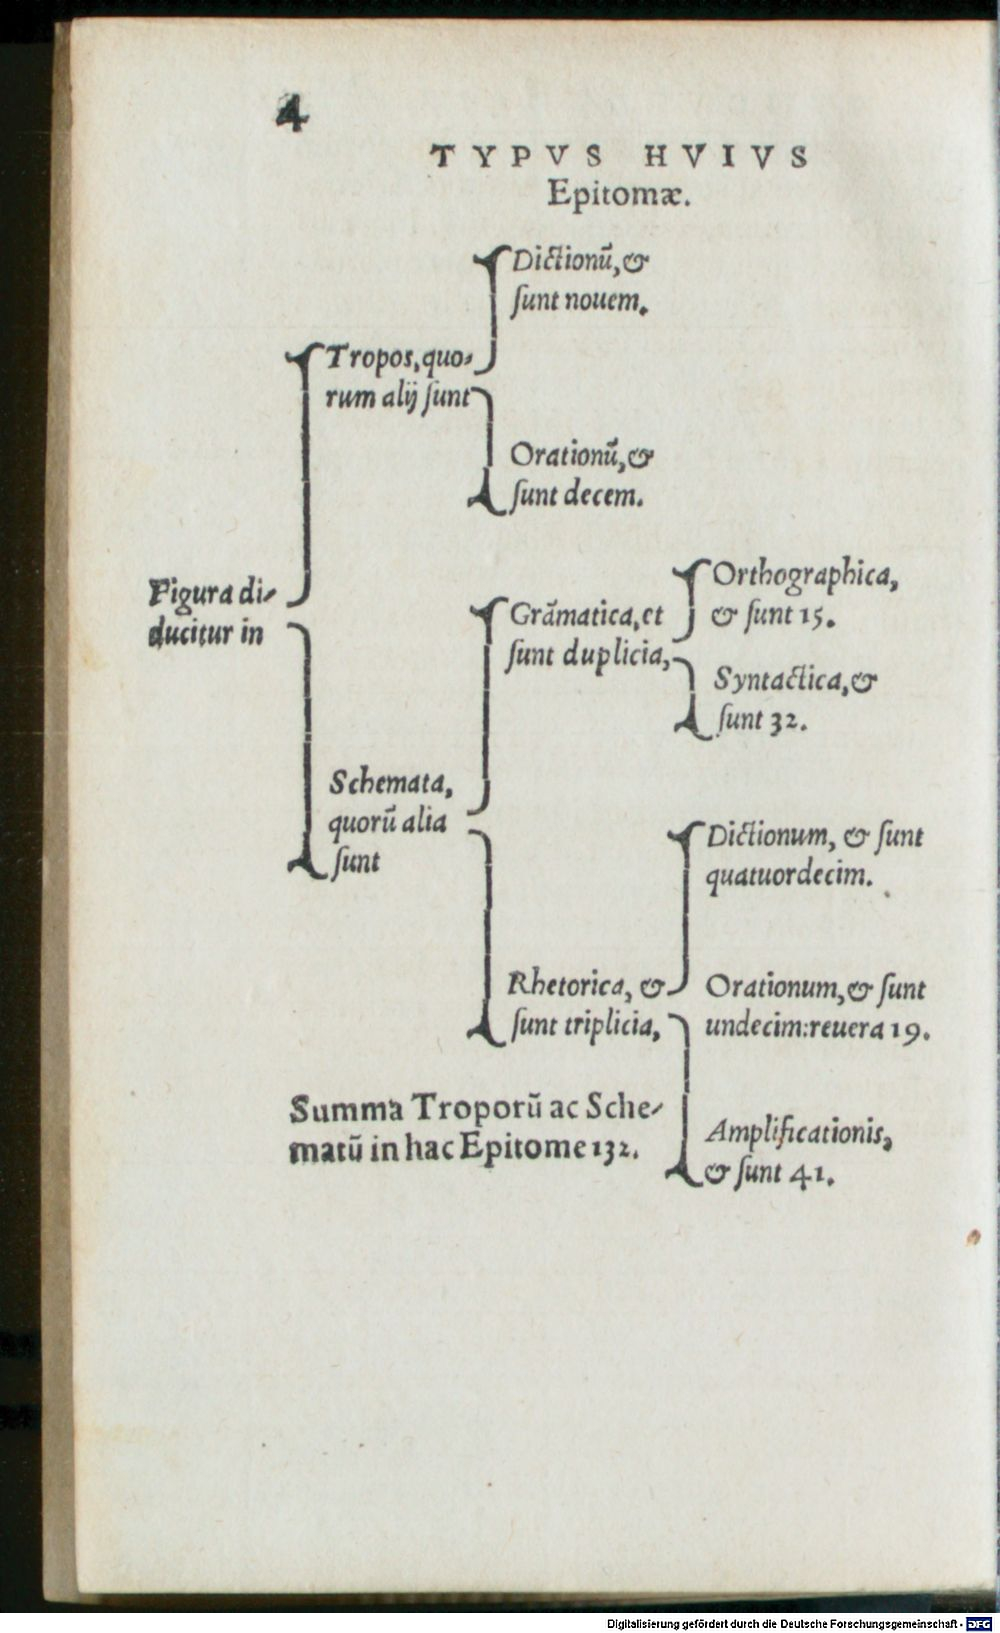 4
TYPVS HVIVS
Epitomæ.
Dictionũ, &
ſunt nouem.
Tropos, quo-
rum alij ſunt
Orationũ, &
ſunt decem.
Figura di-
ducitur in
Orthographica,
& ſunt 15.
Grãmatica, et
ſunt duplicia,
Syntactica, &
ſunt 32.
Schemata,
quorũ alia
ſunt
Dictionum, & ſunt
quatuordecim.
Rhetorica, &
ſunt triplicia,
Orationum, & ſunt
undecim: reuera 19.
Amplificationis,
& ſunt 41.
Summa Troporũ ac Sche-
matũ in hac Epitome 132.
Digitalisierung gefördert durch die Deutsche Forschungsgemeinschaft - DFG